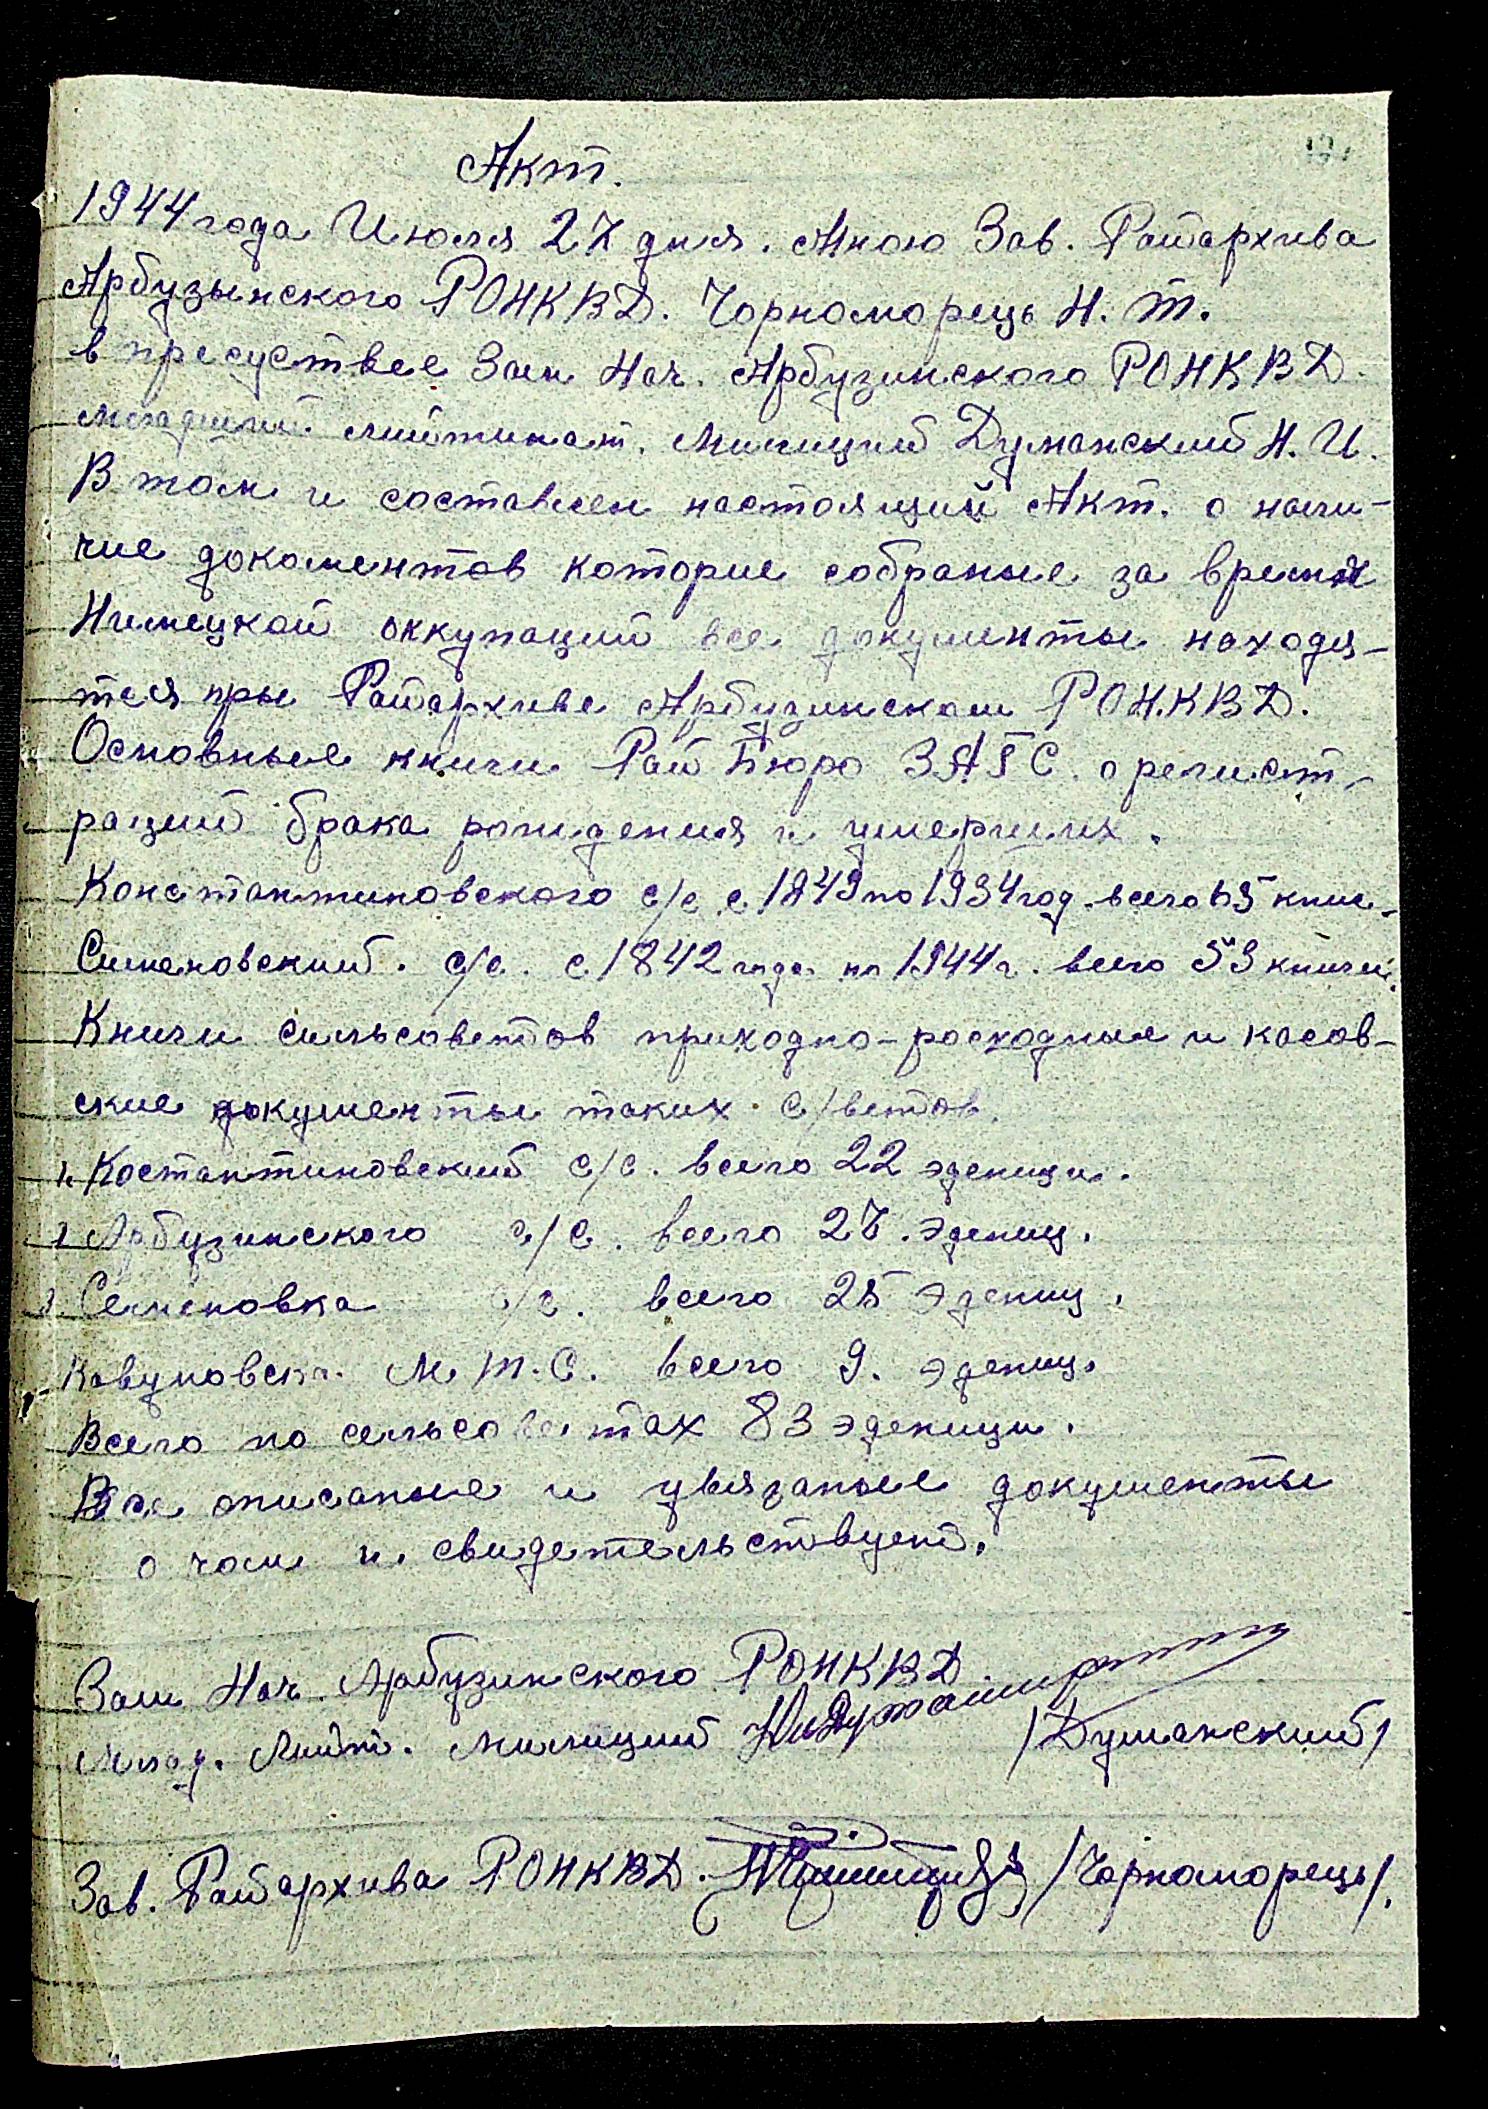 Акт.
1944 года Июля 27 дня. Мною Зав. Райархива
Арбузынского РОНКВД. Чорноморець Н. Т.
в пресуствее Зам Нач. Арбузинского РОНКВД.
младший лийтинат. Милиций Думанский Н. И.
В том и составлен настоящий Акт. о нали-
чие докоментов которие собраные за время
Нимецкой оккупаций все документы находя-
тся при Райархиве Арбузинском РОН.КВД.
Основные книги Рай Бюро ЗАГС о регист-
раций брака рождения и умерших.
Константиновского с/с с 1849 по 1934 год всего 65 книг.
Сименовский. с/с. с 1842 года по 1944 г. всего 53 книги.
Книги сильсоветов приходно-росходные и касов-
ские документы таких с/ветов.
1. Костантиновский с/с. всего 22 эденици.
2 Арбузинского с/с. всего 27. эдениц.
3 Семеновка с/с. всего 25 эдениц.
Кавуновск. М.Т.С. всего 9. эдениц.
Всего по сельсоветах 83 эденици.
Все описаные и увязаные документы
о чом и. свидетельствует.
Зам Нач. Арбузинского РОНКВД.
Млад. Лийт. Милиций /Думанский/
Зав. Райархива РОНКВД. /Чорноморець/.